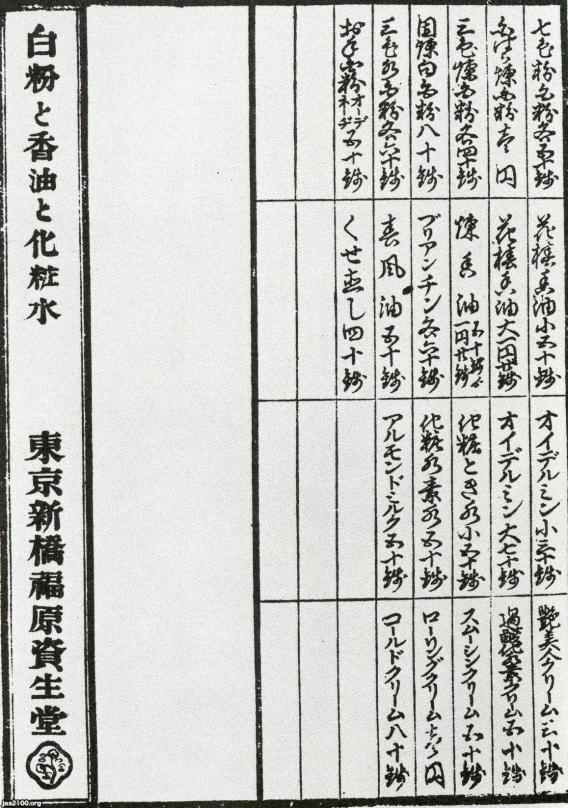 七色粉白粉各五十銭
三色煉白粉各四十銭
固煉白白粉八十銭
三色水白粉各六十銭
オーデ
ネヂ
五十銭
花椿香油小五十銭
花椿香油大一円廿銭
煉香油
五十銭
一円廿銭
ブリアンチン各六十銭
春風油五十銭
くせ直し四十銭
オイデルミン小三十銭
オイデルミン大七十銭
化粧とき水小五十銭
化粧水素水五十銭
アルモンドミルク五十銭
艶美人クリーム三十銭
過酸化水素クリーム五十銭
スムーシンクリーム五十銭
ローリングクリーム
円
コールドクリーム八十銭
白粉と香油と化粧水
東京新橋福原資生堂
jaa2100.org